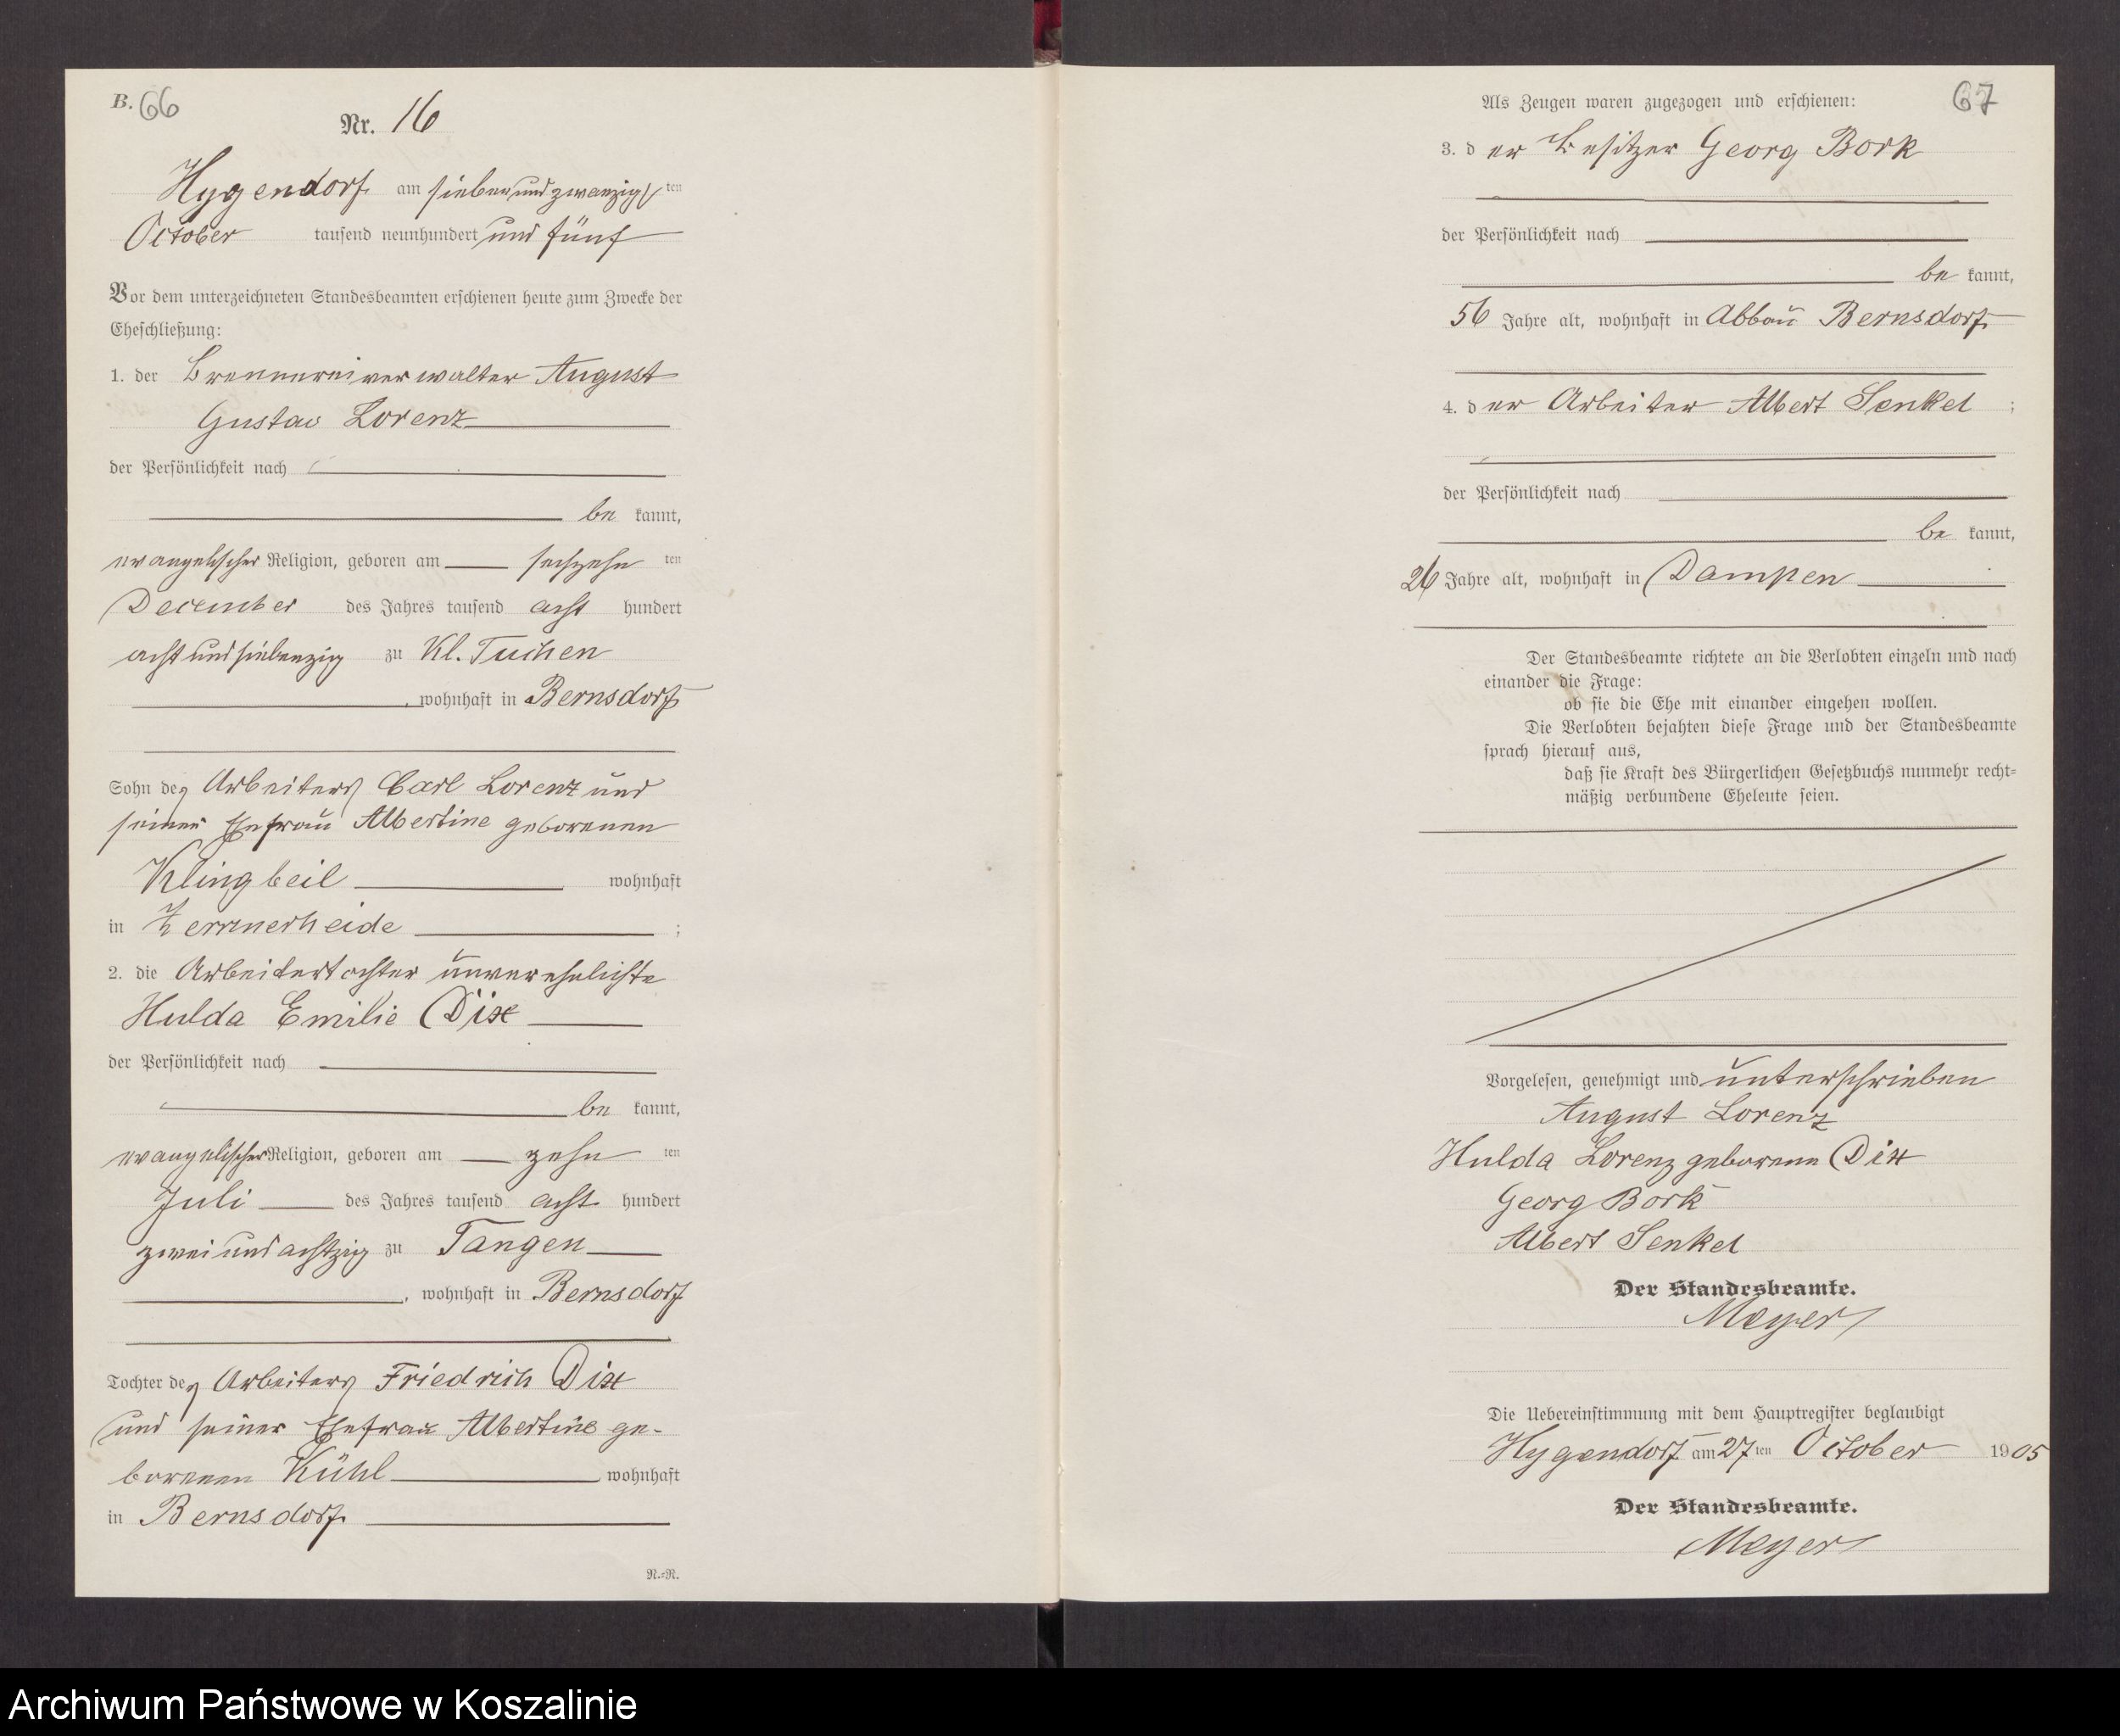 B. 66
Nr. 16
Hygendorf am siebenundzwanzigsten
October tausend neunhundert und fünf
Vor dem unterzeichneten Standesbeamten erschienen heute zum Zwecke der
Eheschließung:
1. der Brennereiverwalter August
Gustav Lorenz
der Persönlichkeit nach
be kannt,
evangelischer Religion, geboren am sechzehn ten
December des Jahres tausend acht hundert
acht und siebenzig zu Kl. Tuchen
, wohnhaft in Bernsdorf
Sohn des Arbeiters Carl Lorenz und
seiner Ehefrau Albertine geborenen
Klingbeil wohnhaft
in Zerrinerheide ;
2. die Arbeitertochter unverehelichte
Hulda Emilie Dix
der Persönlichkeit nach
be kannt,
evangelischer Religion, geboren am zehn ten
Juli des Jahres tausend acht hundert
zwei und achtzig zu Tangen
, wohnhaft in Bernsdorf
Tochter des Arbeiters Friedrich Dix
und seiner Ehefrau Albertine ge-
borenen Kühl wohnhaft
in Bernsdorf
N.=N.
67
Als Zeugen waren zugezogen und erschienen:
3. der Besitzer Georg Bork
der Persönlichkeit nach
be kannt,
56 Jahre alt, wohnhaft in Abbau Bernsdorf
4. der Arbeiter Albert Senkel ;
der Persönlichkeit nach
be kannt,
26 Jahre alt, wohnhaft in Dampen
Der Standesbeamte richtete an die Verlobten einzeln und nach
einander die Frage:
ob sie die Ehe mit einander eingehen wollen.
Die Verlobten bejahten diese Frage und der Standesbeamte
sprach hierauf aus,
daß sie Kraft des Bürgerlichen Gesetzbuchs nunmehr recht=
mäßig verbundene Eheleute seien.
Vorgelesen, genehmigt und unterschrieben
August Lorenz
Hulda Lorenz geborene Dix
Georg Bork
Albert Senkel
Der Standesbeamte.
Meyer
Die Uebereinstimmung mit dem Hauptregister beglaubigt
Hygendorf am 27ten October 1905
Der Standesbeamte.
Meyer
Archiwum Państwowe w Koszalinie